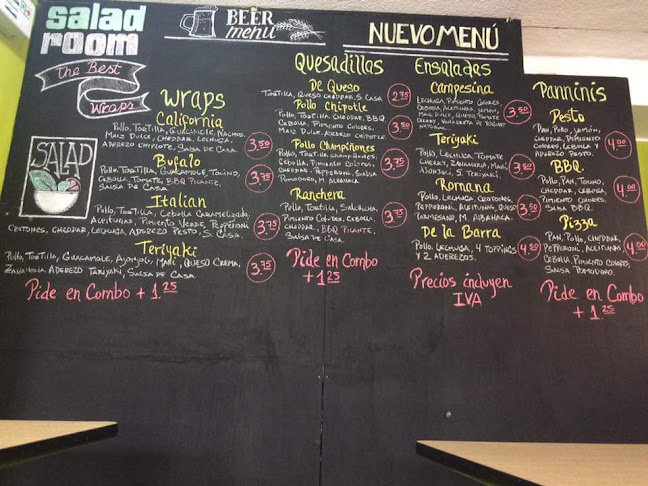 salad
room
BEER
menu
NUEVO MENÚ
The Best
Wraps
SALAD
Wraps
California
Pollo, Tortilla, Guacamole, Nachos,
Maiz Dulce, Cheddar, Lechuga,
Aderezo Chipotle, Salsa de Casa.
3.50
Bufalo
Pollo, Tortilla, Guacamole, Tocino,
Cebolla, Tomate, BBQ Picante,
Salsa de Casa.
3.75
Italian
Pollo, Tortilla, Cebolla Caramelizada,
Aceitunas, Pimiento Verde, Pepperoni
Crotones, Cheddar, Lechuga, Aderezo Pesto, S. Casa.
3.75
Teriyaki
Pollo, Tortilla, Guacamole, Ajonjoli, Maní, Queso Crema,
Zanahoria Aderezo Tariyaki, Salsa de Casa.
3.75
Pide en Combo + 1.25
Quesadillas
De Queso
Tortilla, Queso Cheddar, S. Casa
2.75
Pollo Chipotle
Pollo, Tortilla Cheddar, BBQ
Cebolla, Pimiento Colores,
Maiz Dulce, Aderezo Chipotle
3.75
Pollo Champiñones
Pollo, Tortilla Champiñones,
Cebolla, Pimiento Colores,
Cheddar, Pepperoni, Salsa
Pomodoro, M. Albahaca
3.75
Ranchera
Pollo, Tortilla, Salchicha,
Pimiento Colores, Cebolla,
Cheddar, BBQ Picante,
Salsa de Casa.
3.75
Pide en Combo
+ 1.25
Ensaladas
Campesina
Lechuga, Pimiento Colores,
Cebolla, Aceitunas, Jamón,
Maiz Dulce, Queso, Tomate
Cherry, Vinagreta de Yogurt
Natural.
3.50
Teriyaki
Pollo, Lechuga, Tomate
Cherry, Zanahoria, Maní
Ajonjoli, S. Teriyaki.
3.50
Romana
Pollo, Lechuga Crotones,
Pepperoni, Aceitunas, Queso
Parmesano, M. Albahaca.
3.90
De la Barra
Pollo, Lechuga, 4 Toppings
y 2 Aderezos.
4.50
Precios incluyen
IVA
Panninis
Pesto
Pan, Pollo, Jamón,
Cheddar, Pimiento
Colores, Cebolla y
Aderezo Pesto.
4.00
BBQ.
Pan, Pollo, Tocino
Cheddar, Cebolla,
Pimiento Colores,
Salsa BBQ.
4.00
Pizza
Pan, Pollo, Cheddar,
Pepperoni, Aceitunas,
Cebolla Pimiento Colores,
Salsa Pomodoro.
4.00
Pide en Combo
+ 1.25